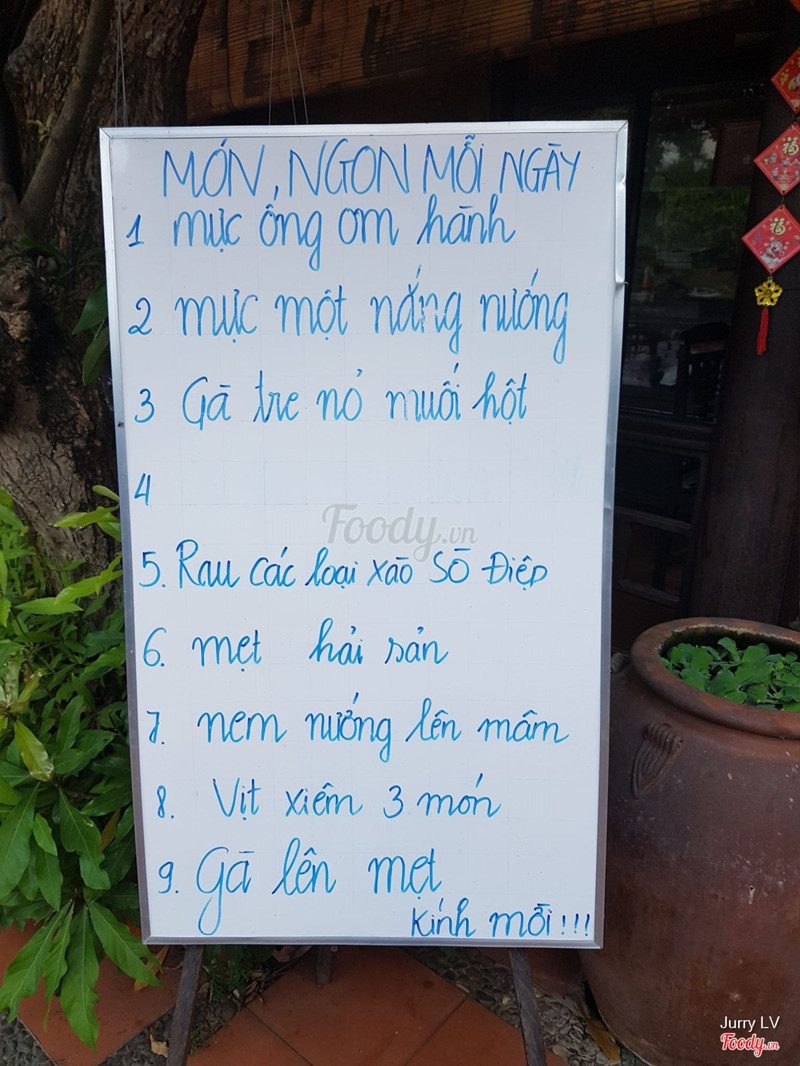 MÓN, NGON MỖI NGÀY
1 mực ống om hành
2 mực một nắng nướng
3 Gà tre nỏ muối hột
4
5. Rau các loại xào SÒ Điệp
6. mẹt hải sản
7. nem nướng lên mâm
8. Vịt xiêm 3 món
9. Gà lên mẹt
Kính mời!!!
Foody.vn
福
福
Jurry LV
Foody.vn